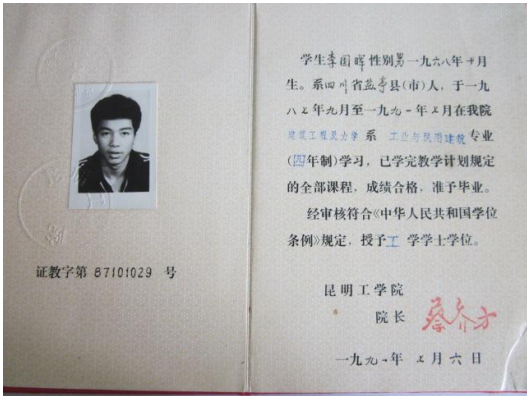 证教字第 87101029 号
学生李国晖性别男一九六八年十月
生。系四川省盐亭县(市)人，于一九
八七年九月至一九九一年七月在我院
建筑工程及力学 系 工业与民用建筑 专业
(四年制)学习，已学完教学计划规定
的全部课程，成绩合格，准予毕业。
经审核符合《中华人民共和国学位
条例》规定，授予工 学学士学位。
昆明工学院
院长
一九九一年 七月六日